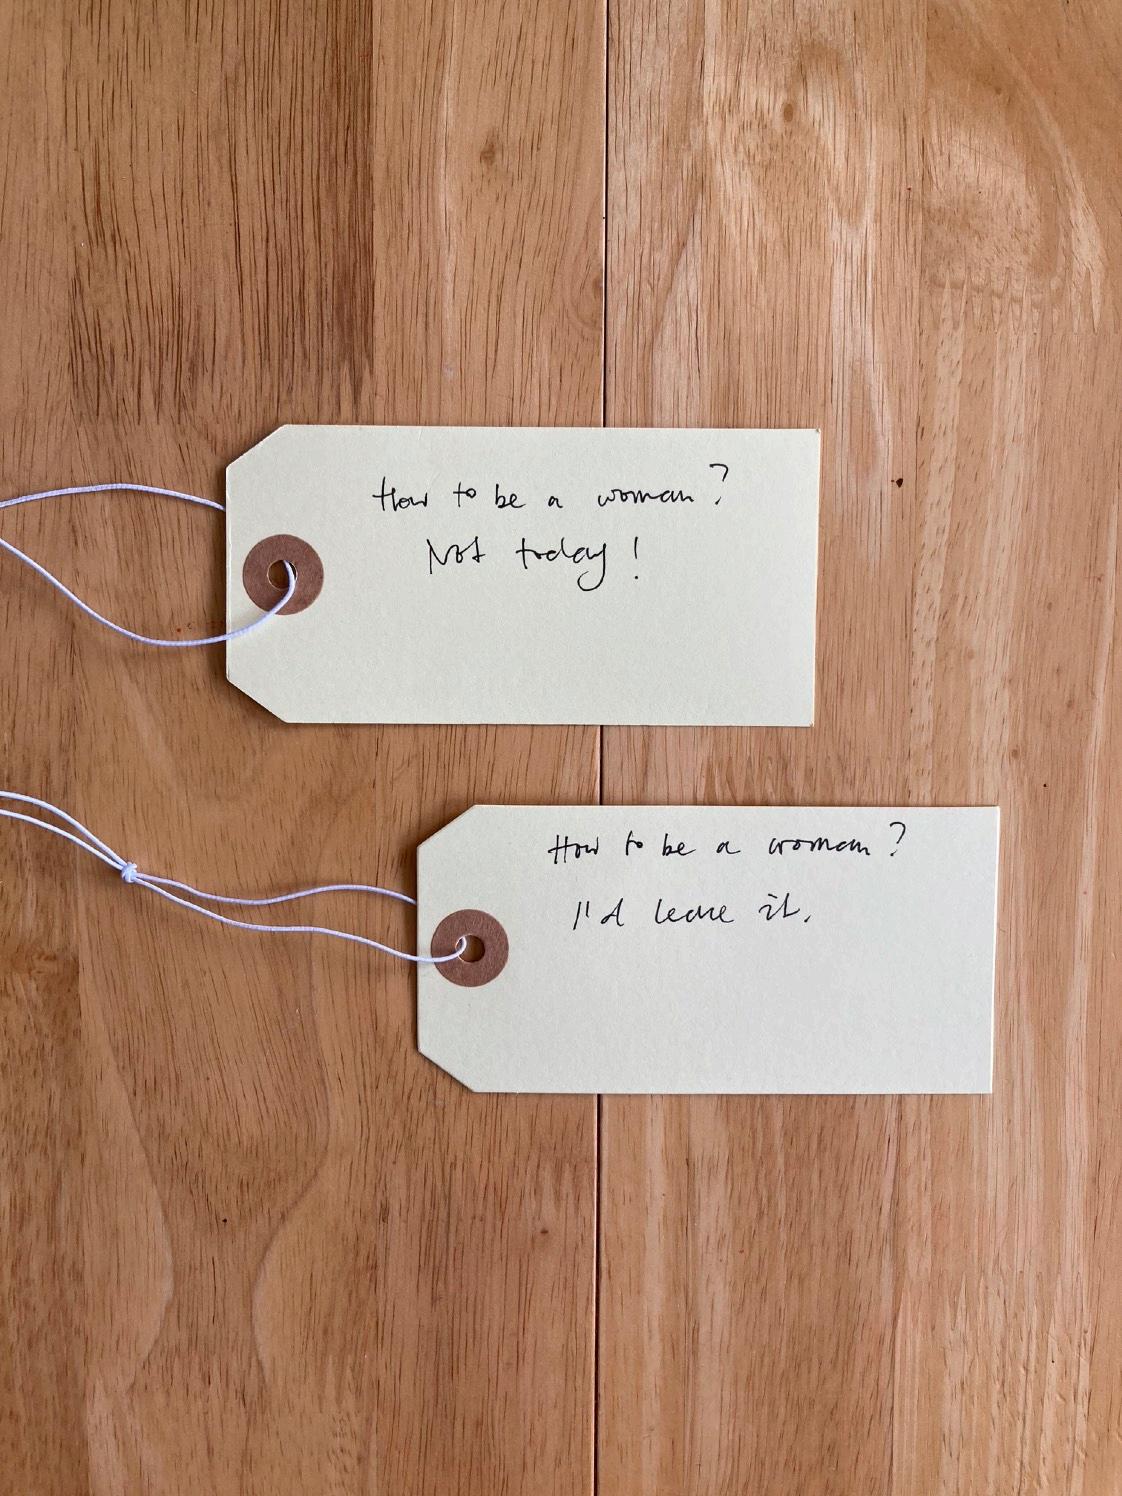 How to be a woman?
Not today!
How to be a woman?
I'd leave it.